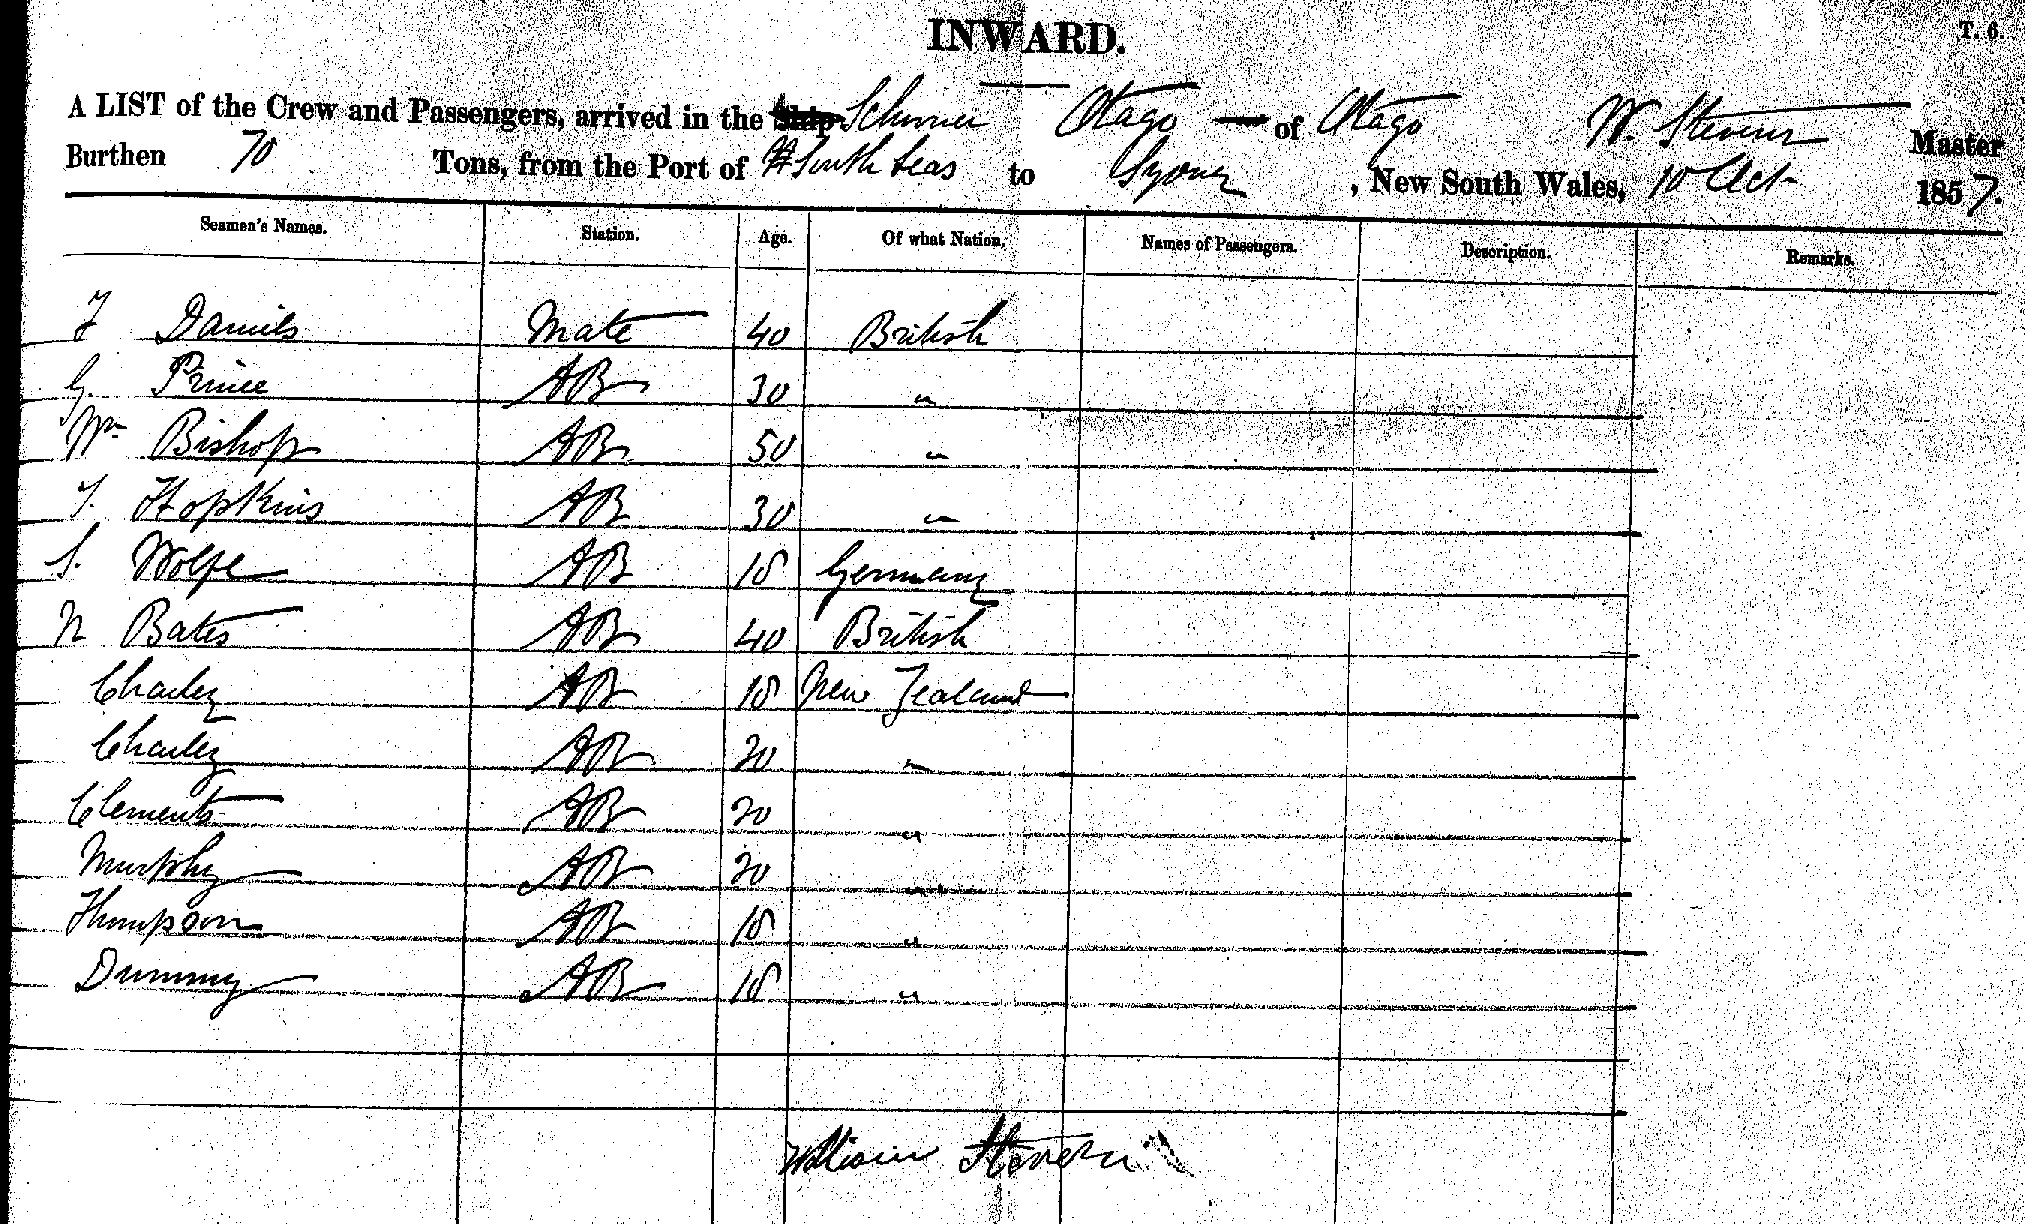 INWARD.
T. 6.
A LIST of the Crew and Passengers, arrived in the Ship Schooner Otago of Otago W. Stevens Master
Burthen 70 Tons, from the Port of South Seas to Sydney, New South Wales, 10 Oct 1857.
Seamen's Names. Station. Age. Of what Nation. Names of Passengers. Description. Remarks.
J Daniels Mate 40 British
G. Prince AB 30 "
Wm Bishop AB 50 "
J. Hopkins AB 30 "
S. Wolfe AB 18 Germany
N Bates AB 40 British
Charley AB 18 New Zealand
Charley AB 20 "
Clements AB 20 "
Murphy AB 20 "
Thompson AB 18 "
Dummy AB 18 "
William Stevens